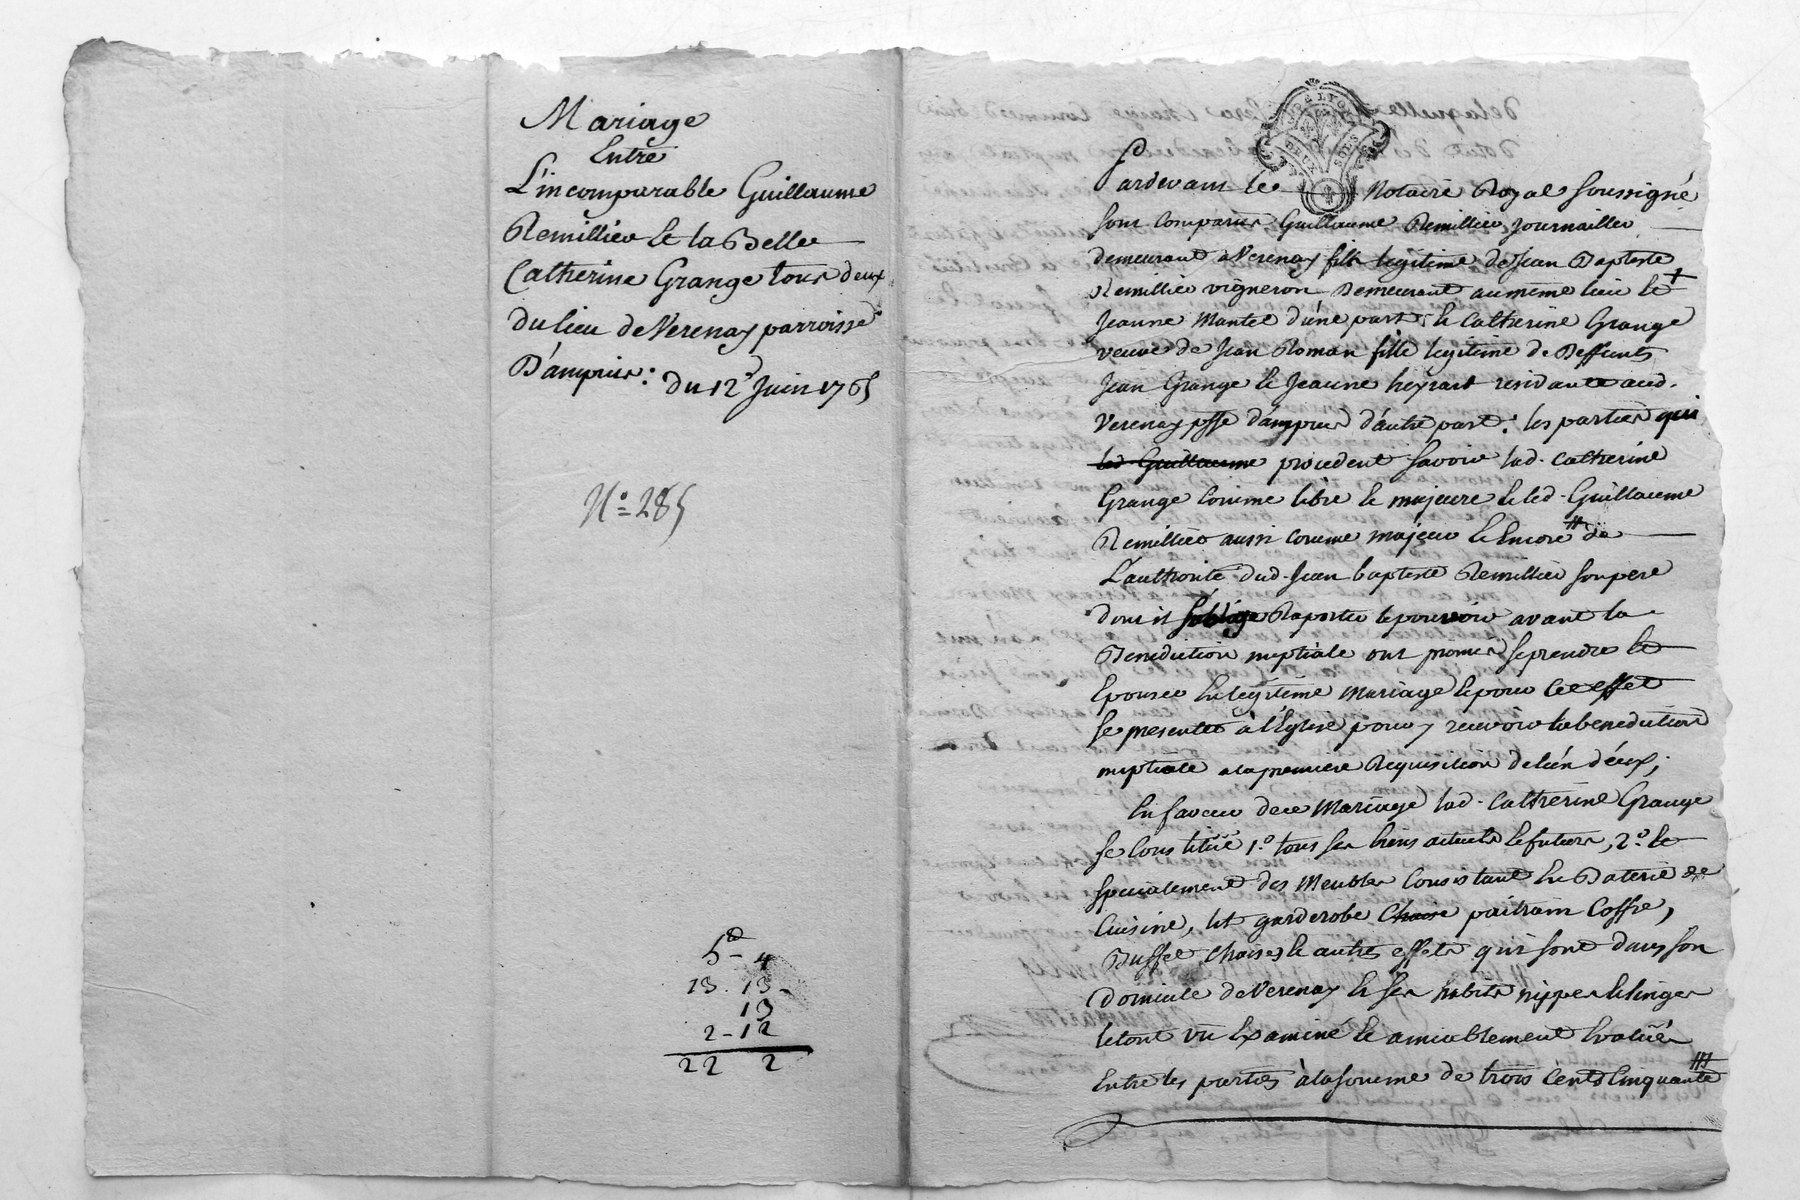 Mariage
Entre
L'incomparable Guillaume
Remillieu et la Belle
Catherine Grange tous deux
du lieu de Verenay parroisse
D'ampuis: du 12e Juin 1765
N° 285
5 - 4
13 . 13 -
13
2 - 12
22 2
DEUX SOLS
Pardevant le Notaire Royal soussigné
sont comparus Guillaume Remillieu journaillier
demeurant a Verenay fils legitime de Jean Baptiste
Remillieu vigneron Demeurant au meme lieu et +
Jeanne Mantel d'une part, et Catherine Grange
veuve de Jean Roman fille legitime de Deffunts
Jean Grange et Jeanne residante aud.
Verenay psse d'ampuis d'autre part: les parties qui
led. Guillaume procedent savoir lad. Catherine
Grange comme libre et majeure et led. Guillaume
Remillieu aussi comme majeur et Encore de
L'authorité dud. Jean baptiste Remillieu son pere
dont il s'oblige Raporter le pouvoir avant la
Benediction nuptiale ont promis se prendre et
Epouser En legitime Mariage et pour cet effet
se presenter à l'Eglise pour y recevoir la benediction
nuptiale a la premiere Requisition de l'un d'eux;
En faveur de ce Mariage lad. Catherine Grange
se Constitue 1.° tous ses biens actuels et futurs, 2.° et
specialement des Meubles Consistant En Baterie de
Cuisine, lit garderobe Chaise paitrain Coffre,
Buffet Chaises et autres effets qui sont dans son
domicile de Verenay et ses habits nippes et linges
le tout vu Examiné et amiablement Evalué
Entre les parties à la somme de trois Cents Cinquante